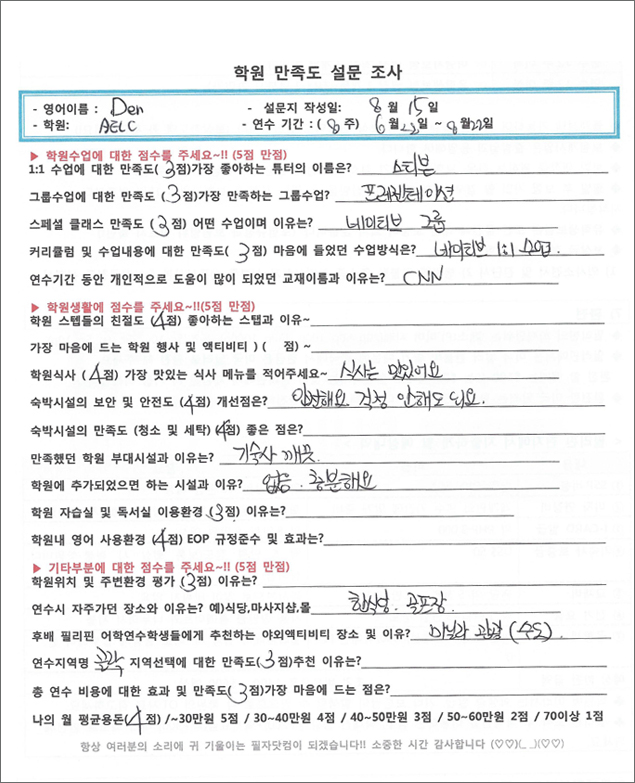 학원 만족도 설문 조사
- 영어이름 : Den - 설문지 작성일: 8 월 15 일
- 학원: AELC - 연수 기간 : ( 8 주) 6월 22일 ~ 8월 22일
▶ 학원수업에 대한 점수를 주세요~!! (5점 만점)
1:1 수업에 대한 만족도( 3점)가장 좋아하는 튜터의 이름은? 스티븐
그룹수업에 대한 만족도 ( 3점)가장 만족하는 그룹수업? 프레젠테이션
스페셜 클래스 만족도 ( 3점) 어떤 수업이며 이유는? 네이티브 그룹
커리큘럼 및 수업내용에 대한 만족도( 3점) 마음에 들었던 수업방식은? 네이티브 1:1 수업.
연수기간 동안 개인적으로 도움이 많이 되었던 교재이름과 이유는? CNN
▶ 학원생활에 점수를 주세요~!!(5점 만점)
학원 스텝들의 친절도 (4점) 좋아하는 스탭과 이유~
가장 마음에 드는 학원 행사 및 액티비티 ) ( 점) ~
학원식사 ( 4점) 가장 맛있는 식사 메뉴를 적어주세요~ 식사는 맛있어요
숙박시설의 보안 및 안전도 ( 4점) 개선점은? 안전해요 걱정 안해도 되요.
숙박시설의 만족도 (청소 및 세탁) ( 4점) 좋은 점은?
만족했던 학원 부대시설과 이유는? 기숙사 깨끗
학원에 추가되었으면 하는 시설과 이유? 없음. 충분해요
학원 자습실 및 독서실 이용환경 ( 3점) 이유는?
학원내 영어 사용환경 ( 4점) EOP 규정준수 및 효과는?
▶ 기타부분에 대한 점수를 주세요~!! (5점 만점)
학원위치 및 주변환경 평가 ( 3점) 이유는?
연수시 자주가던 장소와 이유는? 예)식당,마사지샵,몰 한식당. 골프장.
후배 필리핀 어학연수학생들에게 추천하는 야외액티비티 장소 및 이유? 마닐라 관광 (수도)
연수지역명 클락 지역선택에 대한 만족도( 3점)추천 이유는?
총 연수 비용에 대한 효과 및 만족도( 3점)가장 마음에 드는 점은?
나의 월 평균용돈( 4점) /~30만원 5점 / 30~40만원 4점 / 40~50만원 3점 / 50~60만원 2점 / 70이상 1점
항상 여러분의 소리에 귀 기울이는 필자닷컴이 되겠습니다!! 소중한 시간 감사합니다 (♡♡)(_ _)(♡♡)